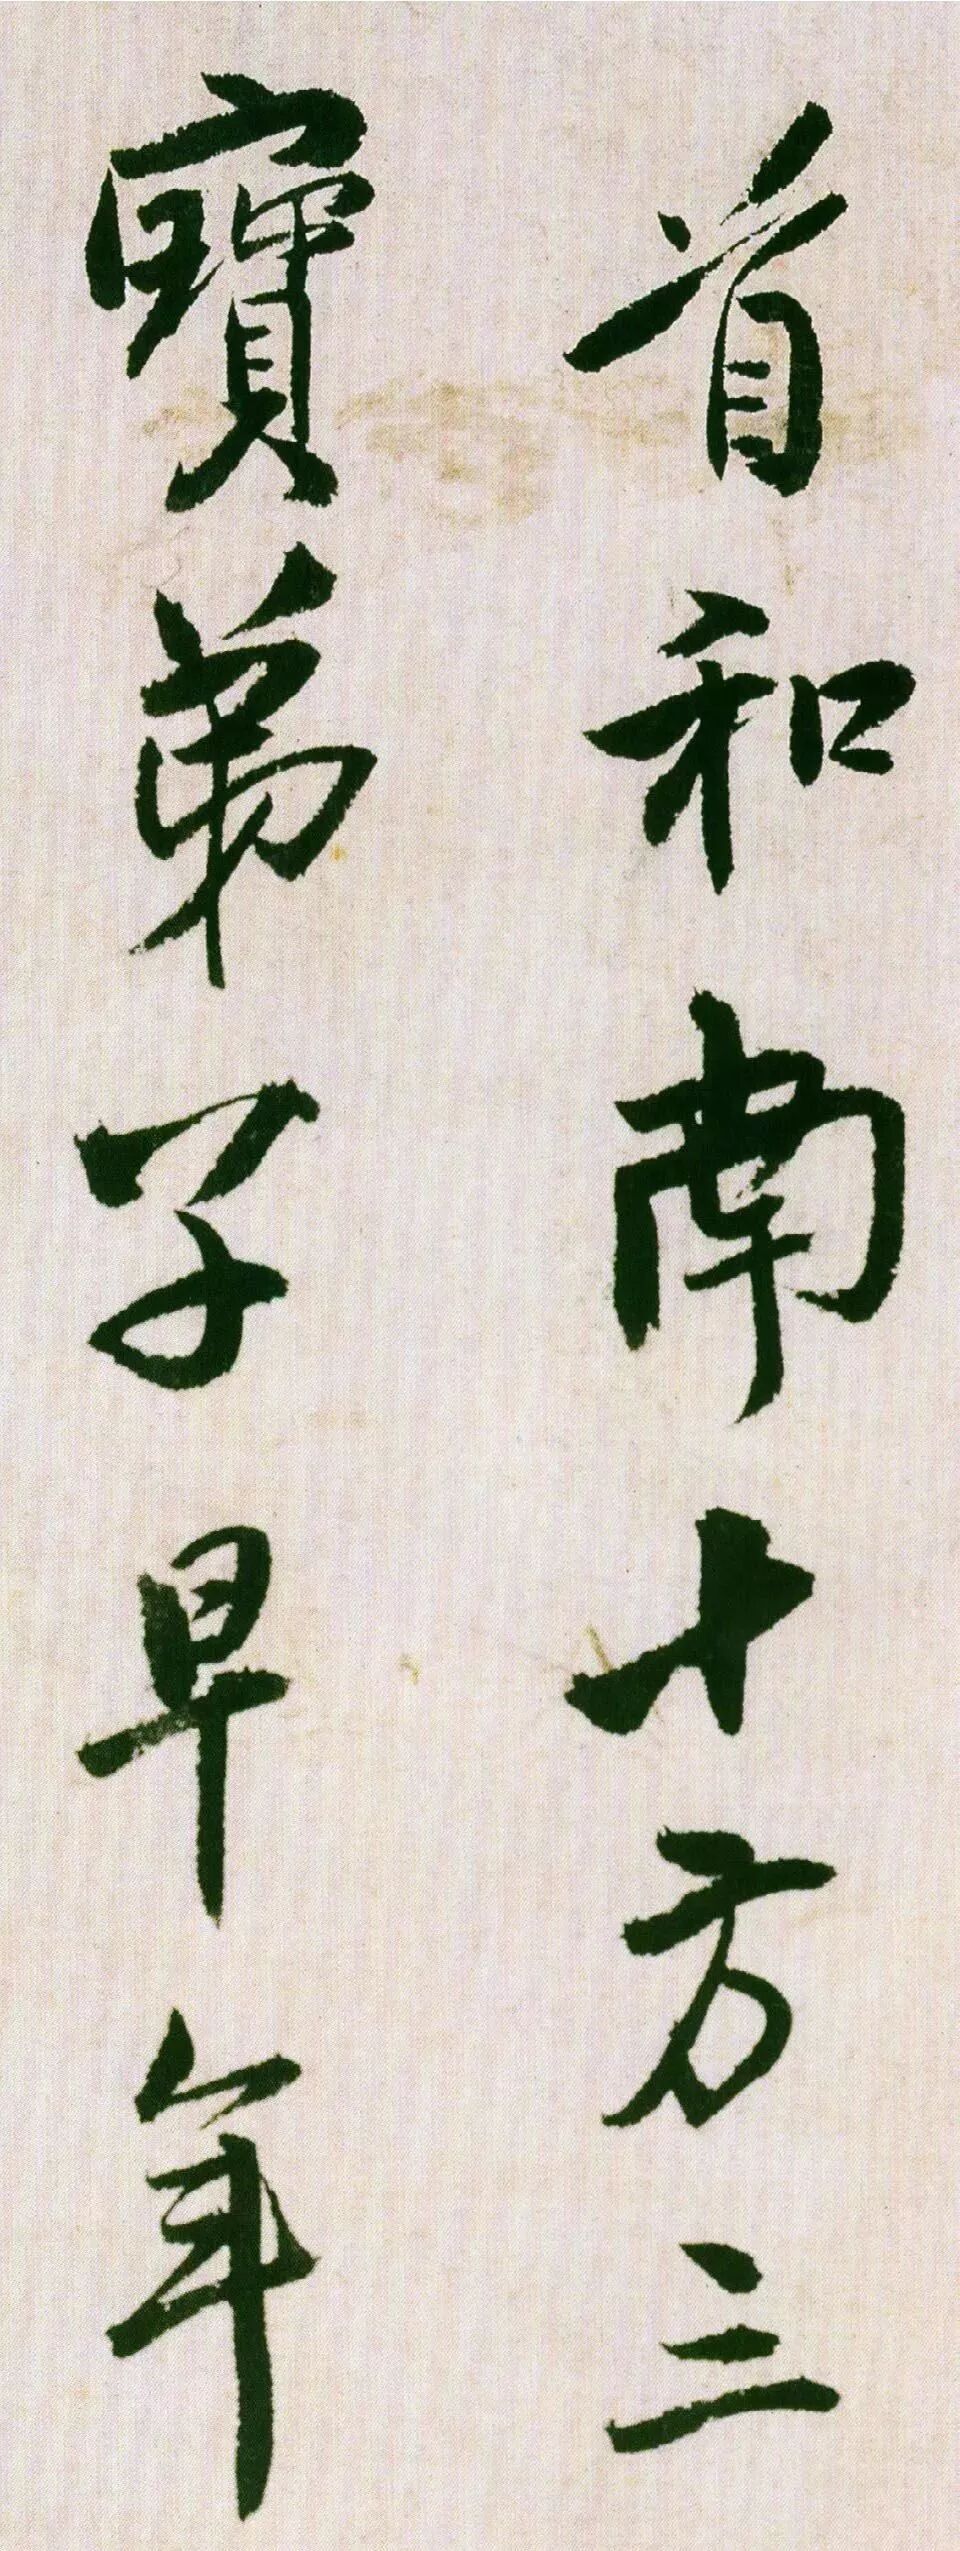 首和南十方三
寶弟子早年